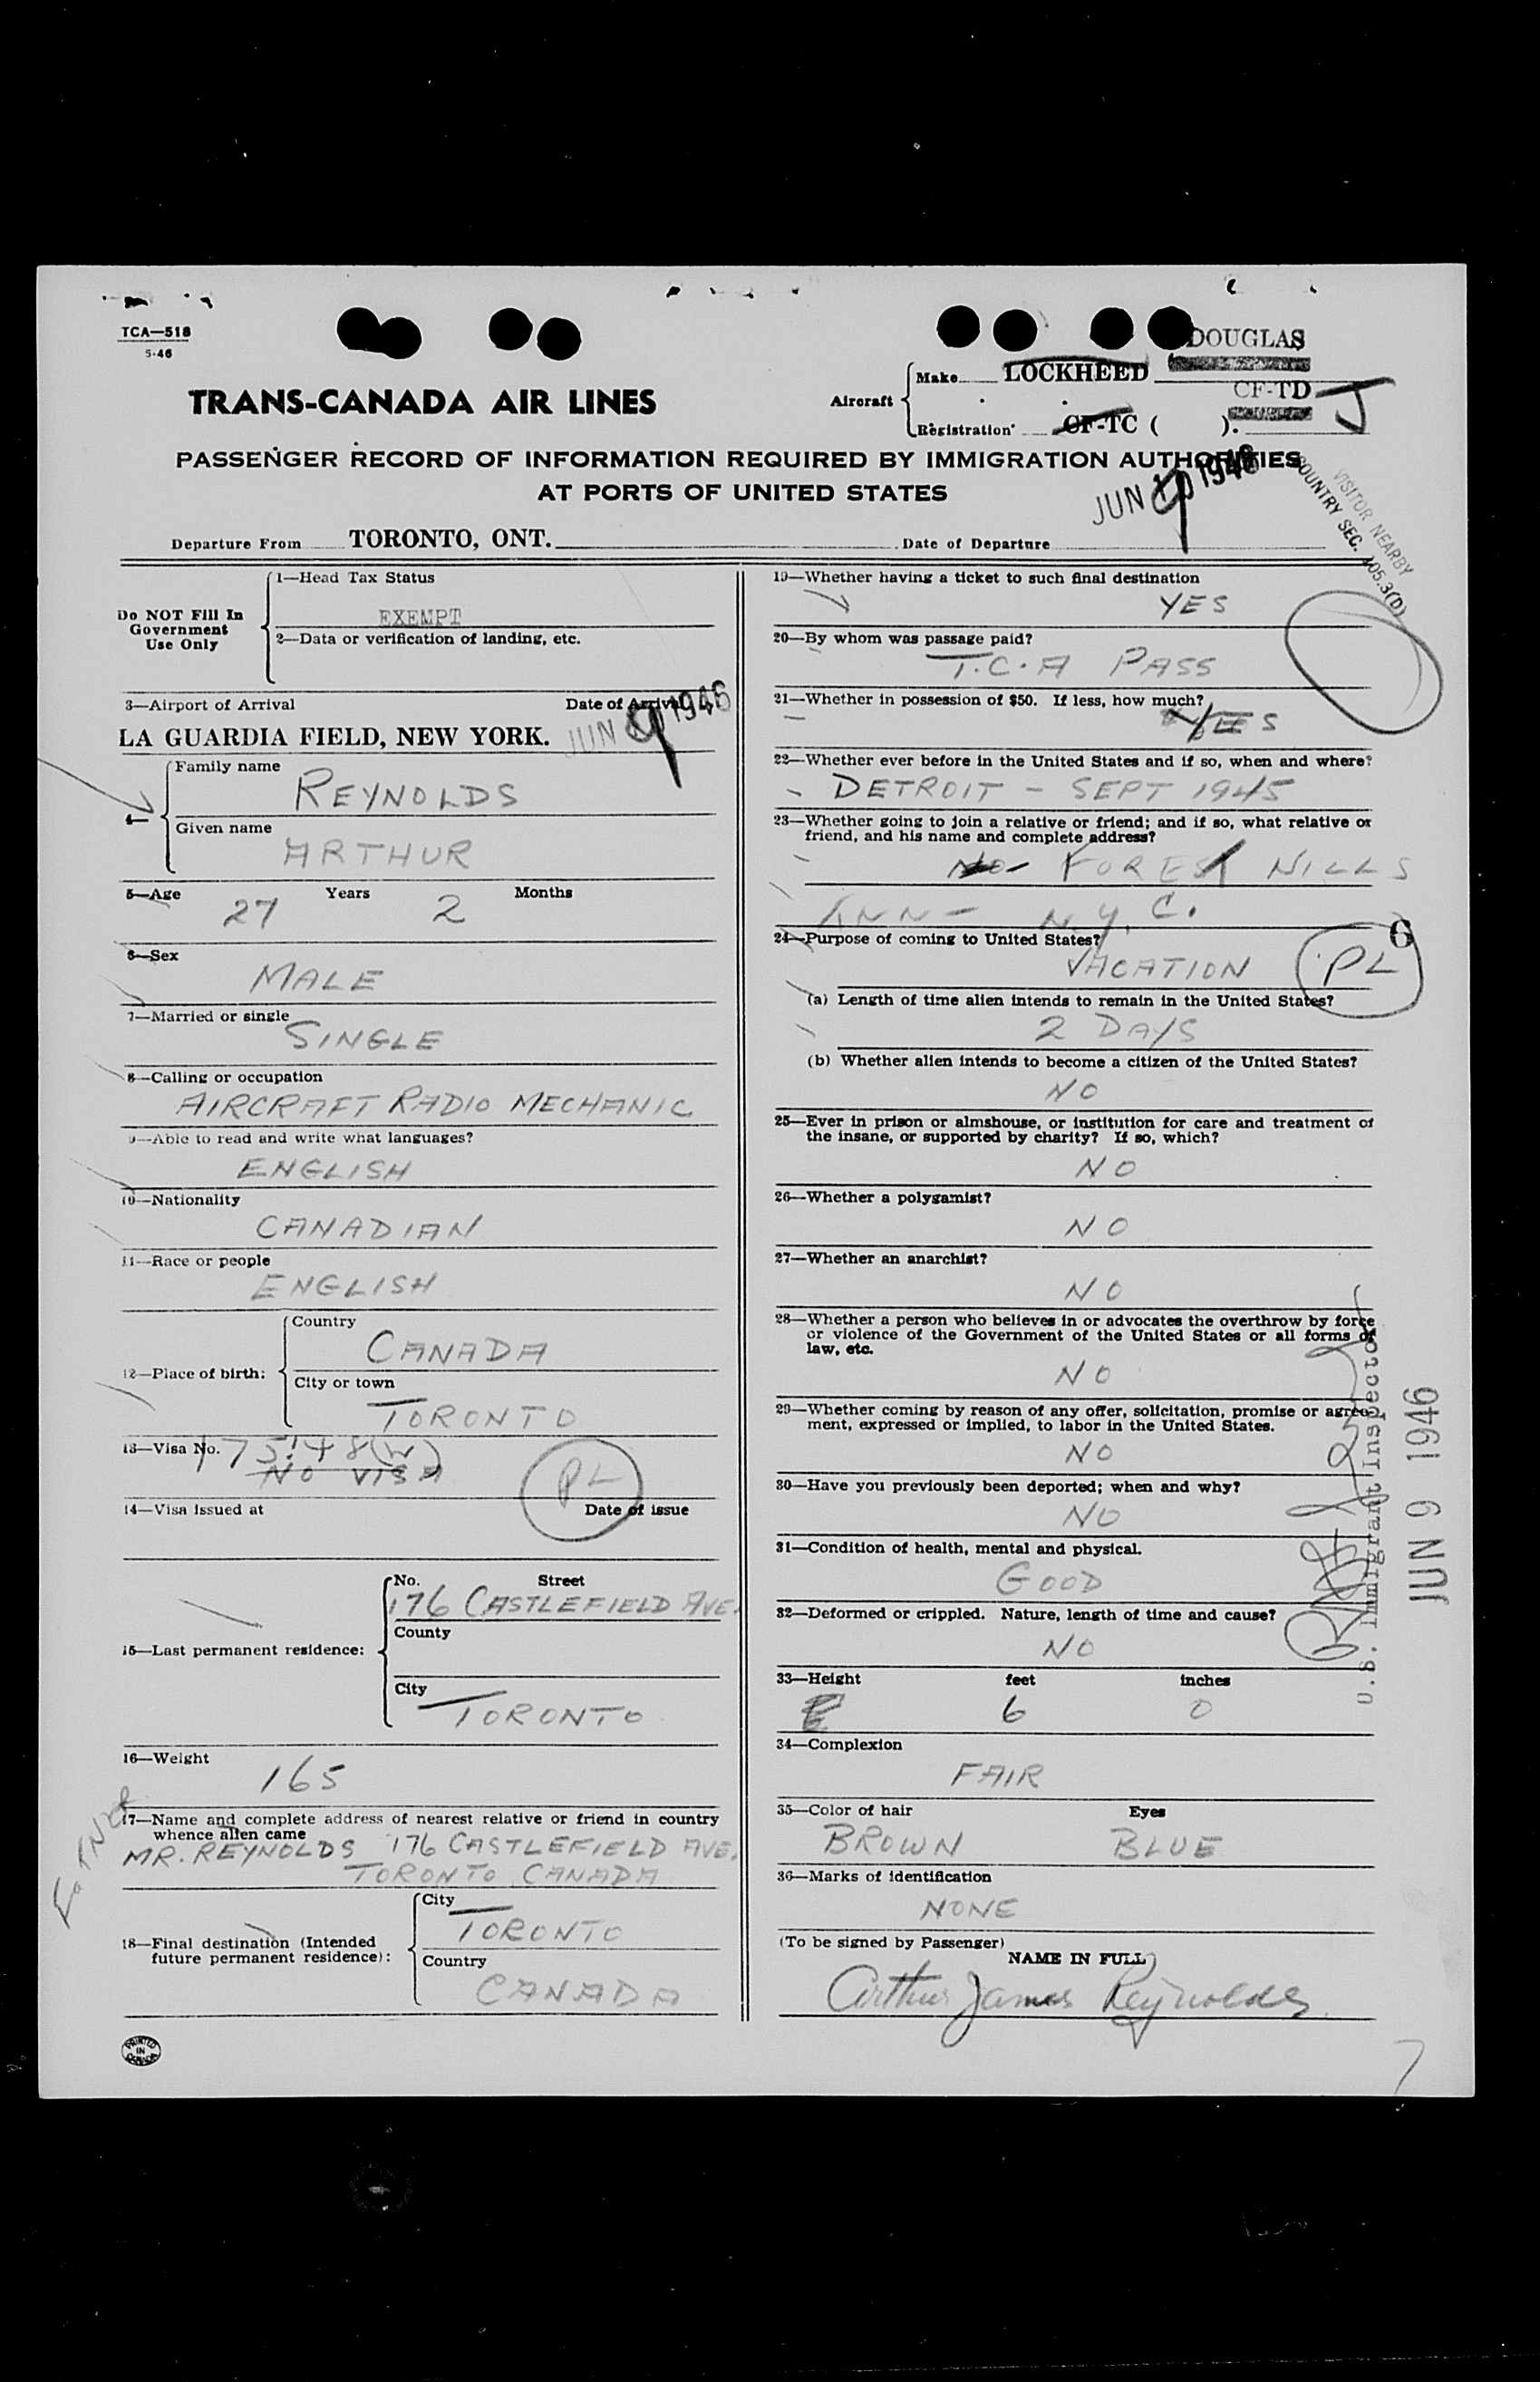 TCA—518
5-46
DOUGLAS
TRANS-CANADA AIR LINES
Aircraft
Make LOCKHEED
CF-TD J
Registration CF-TC ( ).
PASSENGER RECORD OF INFORMATION REQUIRED BY IMMIGRATION AUTHORITIES
AT PORTS OF UNITED STATES
JUN 9 1946
VISITOR NEARBY
COUNTRY SEC. 105.3(D)
Departure From TORONTO, ONT. Date of Departure
Do NOT Fill In
Government
Use Only
1—Head Tax Status
EXEMPT
2—Data or verification of landing, etc.
3—Airport of Arrival Date of Arrival
LA GUARDIA FIELD, NEW YORK. JUN 9 1946
4—
Family name
REYNOLDS
Given name
ARTHUR
5—Age Years Months
27 2
6—Sex
MALE
7—Married or single
SINGLE
8—Calling or occupation
AIRCRAFT RADIO MECHANIC
9—Able to read and write what languages?
ENGLISH
10—Nationality
CANADIAN
11—Race or people
ENGLISH
12—Place of birth:
Country
CANADA
City or town
TORONTO
13—Visa No.
NO VISA
PL
14—Visa issued at Date of issue
15—Last permanent residence:
No. Street
176 CASTLEFIELD AVE.
County
City
TORONTO
16—Weight
165
17—Name and complete address of nearest relative or friend in country
whence alien came
MR. REYNOLDS 176 CASTLEFIELD AVE.
TORONTO CANADA
18—Final destination (Intended
future permanent residence):
City
TORONTO
Country
CANADA
PRINTED
IN
CANADA
19—Whether having a ticket to such final destination
YES
20—By whom was passage paid?
T.C.A PASS
21—Whether in possession of $50. If less, how much?
YES
22—Whether ever before in the United States and if so, when and where?
DETROIT - SEPT 1945
23—Whether going to join a relative or friend; and if so, what relative or
friend, and his name and complete address?
NO - FOREST HILLS
INN - N.Y.C.
24—Purpose of coming to United States?
VACATION
PL
6
(a) Length of time alien intends to remain in the United States?
2 DAYS
(b) Whether alien intends to become a citizen of the United States?
NO
25—Ever in prison or almshouse, or institution for care and treatment of
the insane, or supported by charity? If so, which?
NO
26—Whether a polygamist?
NO
27—Whether an anarchist?
NO
28—Whether a person who believes in or advocates the overthrow by force
or violence of the Government of the United States or all forms of
law, etc.
NO
29—Whether coming by reason of any offer, solicitation, promise or agree-
ment, expressed or implied, to labor in the United States.
NO
30—Have you previously been deported; when and why?
NO
31—Condition of health, mental and physical.
GOOD
32—Deformed or crippled. Nature, length of time and cause?
NO
33—Height feet inches
6 0
34—Complexion
FAIR
35—Color of hair Eyes
BROWN BLUE
36—Marks of identification
NONE
(To be signed by Passenger)
NAME IN FULL
Arthur James Reynolds
U.S. Immigrant Inspector
JUN 9 1946
7